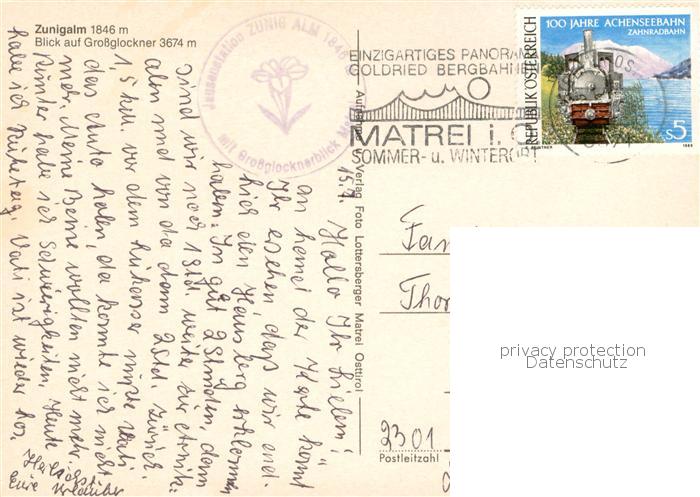 Zunigalm 1846 m
Blick auf Großglockner 3674 m
Jausenstation ZUNIG ALM 1846
mit Großglocknerblick
EINZIGARTIGES PANORAM
GOLDRIED BERGBAHNE
MATREI i. O
SOMMER- u. WINTERO
100 JAHRE ACHENSEEBAHN
ZAHNRADBAHN
REPUBLIK ÖSTERREICH
S5
1989
Verlag Foto Lottersberger Matrei Osttirol
15.9.
Hallo Ihr Lieben!
An hand der Karte könnt
Ihr ersehen, daß wir end-
lich den Hausberg erklommen
haben. In gut 2 Stunden, dann
sind wir noch 1 Std. weiter zur
alm und von da dann 2 Std. zurück.
1,5 km. vor dem mußte Vati
das Auto holen, da konnte ich nicht
mehr. Meine Beine wollten nicht mehr.
Runter habe ich Schwierigkeiten. Heute
habe ich Ruhetag, Vati ist wieder los.
Herzlichst
Eure Urlauber
Fam
Thor
2301
Postleitzahl
privacy protection
Datenschutz